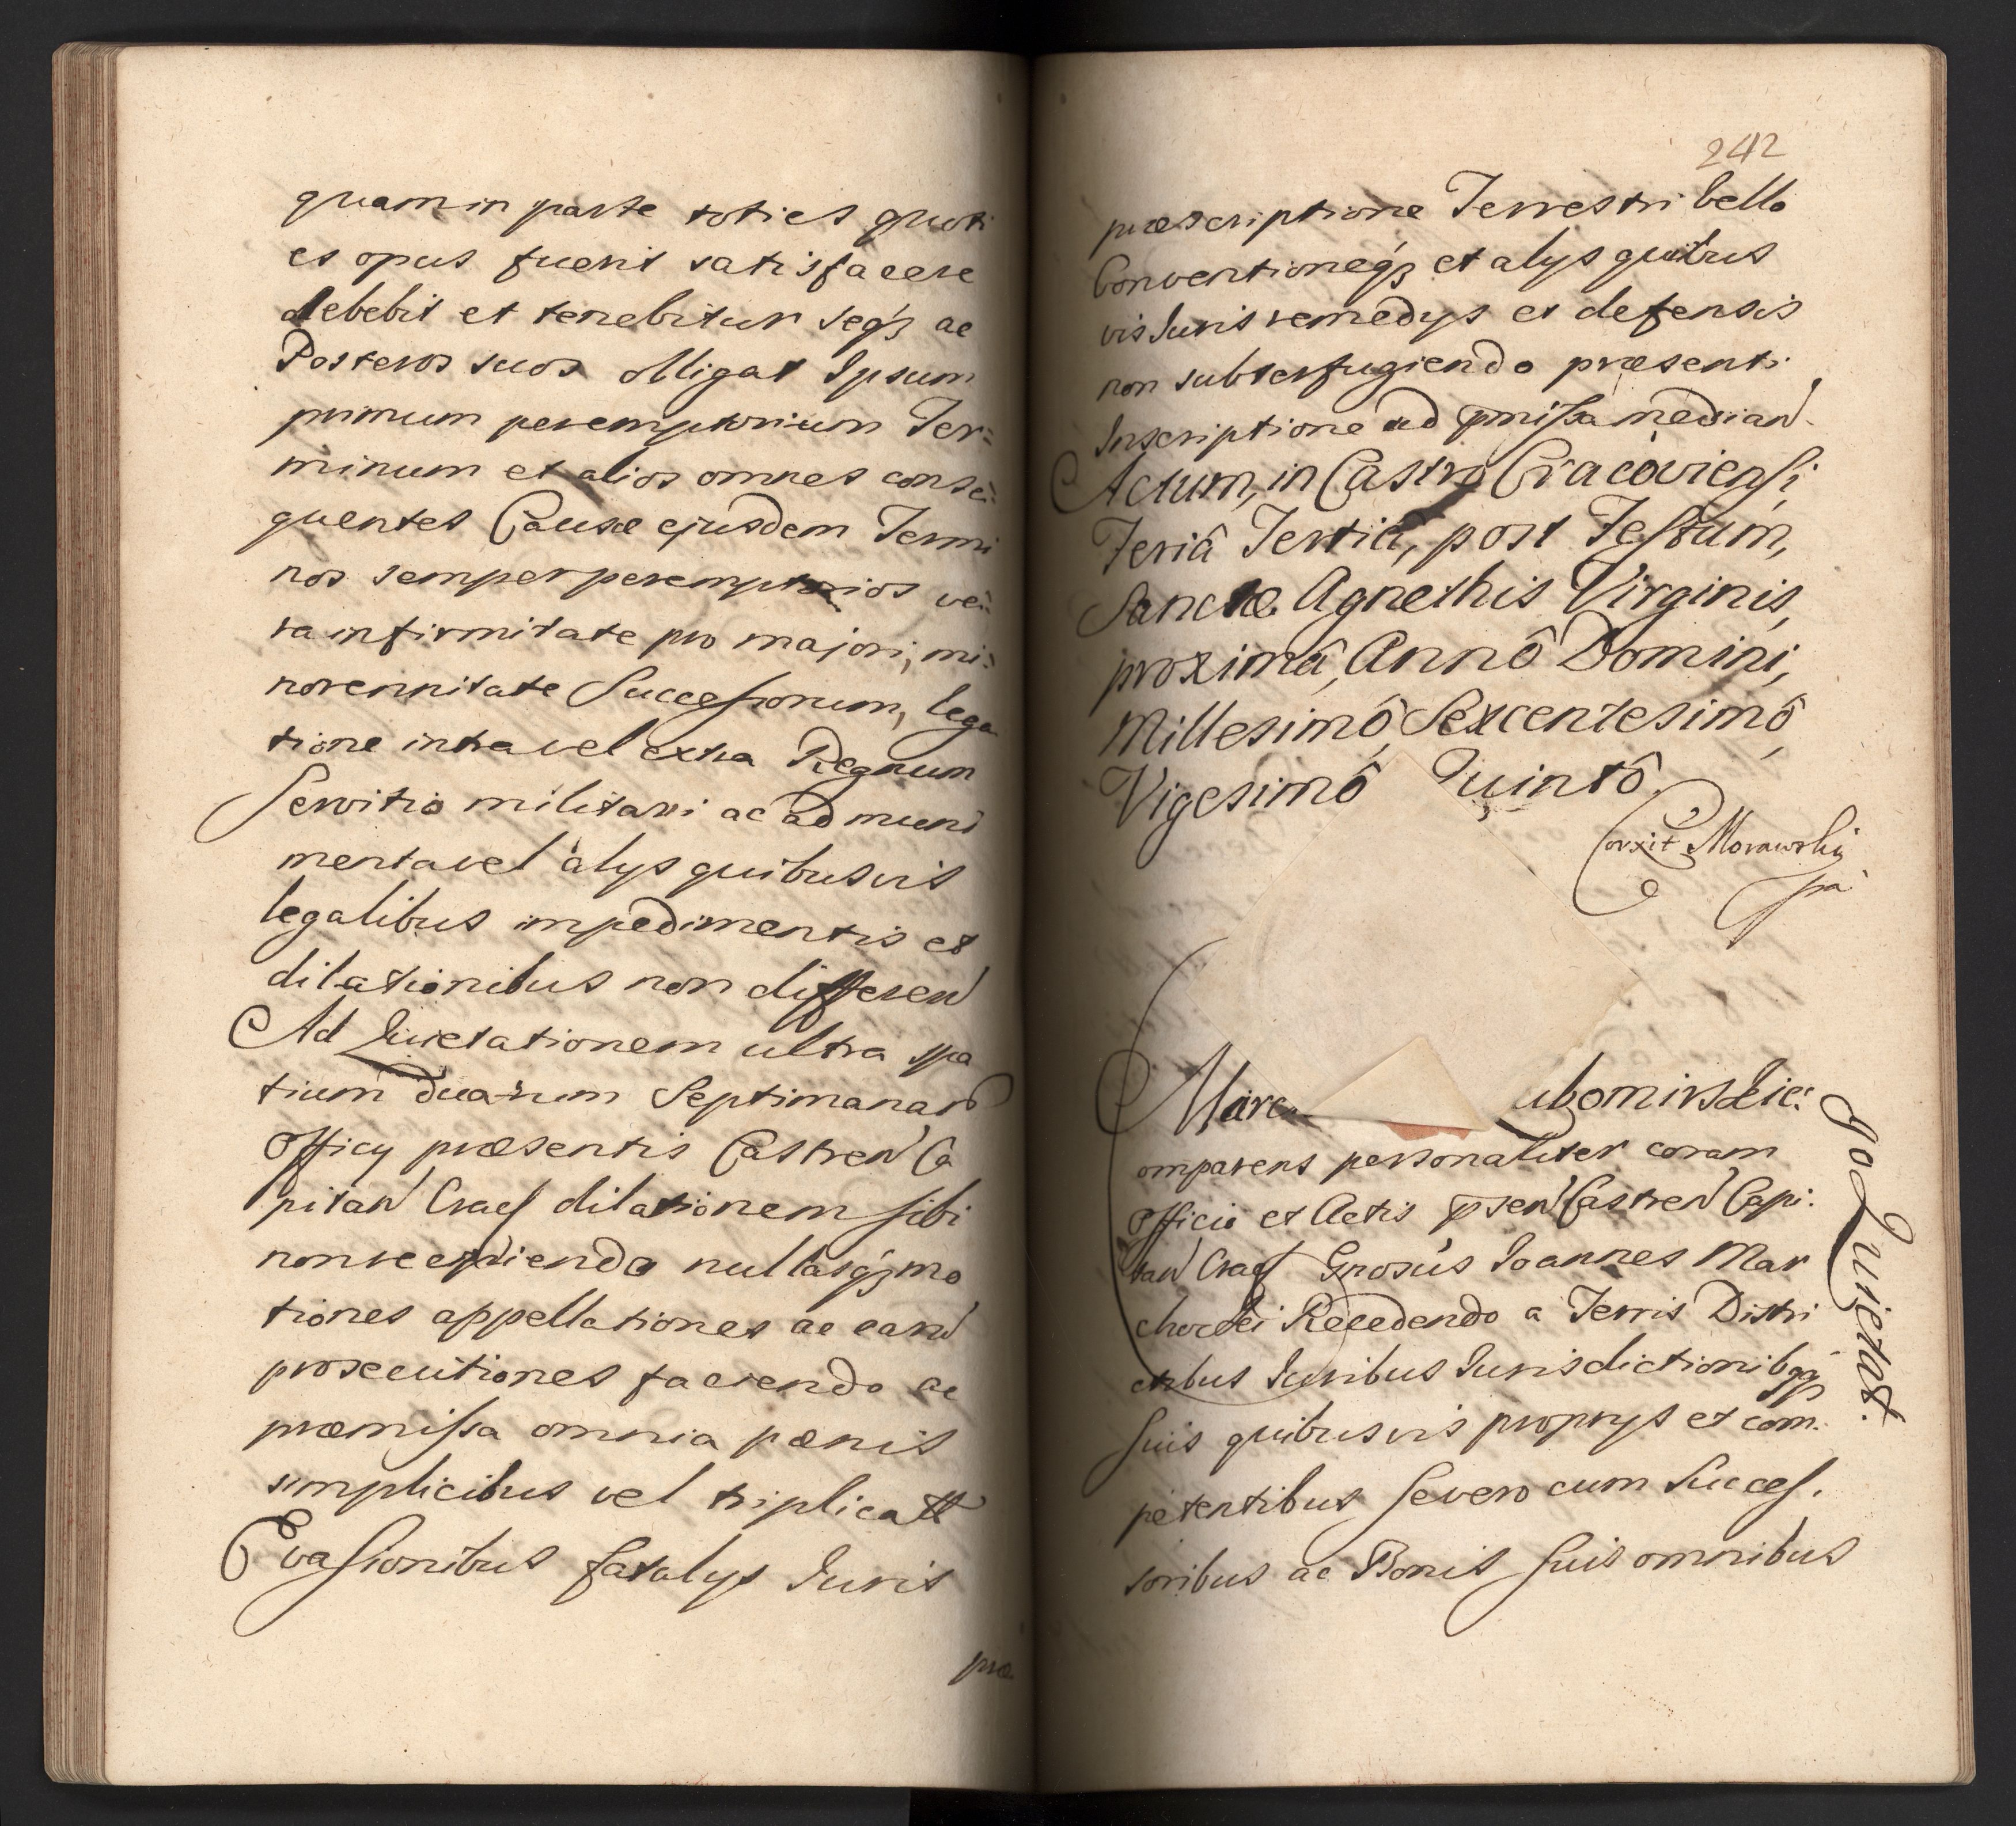 quam in parte toties quoti
es opus fuerit satisfacere
debebit et tenebitur seqz ac
Posteros suos obligat Ipsum
primum peremptorium Ter=
minum et alios omnes conse=
quentes Causæ ejusdem Termi
nos semper peremptorios ve=
ra infirmitate pro majori, mi=
norennitate Successorum, lega
tione intra vel extra Regnum
Servitio militari ac ad muni
menta vel alys quibusvis
legalibus impedimentis et
dilationibus non differen
Ad Quietationem ultra spa
tium duarum Septimanar
Officy præsentis Castren Ca
pitan Crac dilationem sibi
non recipiendo nullasqz mo
tiones appellationes ac earu
prosecutiones faciendo ac
præmissa omnia pœnis
simplicibus vel triplicatt
Evasionibus fatalys Juris
præ
242
præscriptione Terrestri bello
Conventioneqz et alys quibus
vis Juris remedys et defensis
non subterfugiendo præsenti
Inscriptione ad pmissa median
Actum, in Castro Cracoviensi,
Feriâ Tertiâ, post Festum,
Sanctæ Agnethis Virginis,
proximâ, Annô Domini,
Millesimô, Sexcentesimô,
Vigesimô Quintô.
Corxit Morawsky
pa
Marc ubomirskie:
omparens personaliter coram
Officio et Actis psen Castren Capi:
tan Crac Gnosus Joannes Mar
chocki Recedendo a Terris Distri
ctibus Juribus Jurisdictionibqz
suis quibusvis proprys et com:
petentibus se vero cum Succes:
soribus ac Bonis suis omnibus
Quietat.